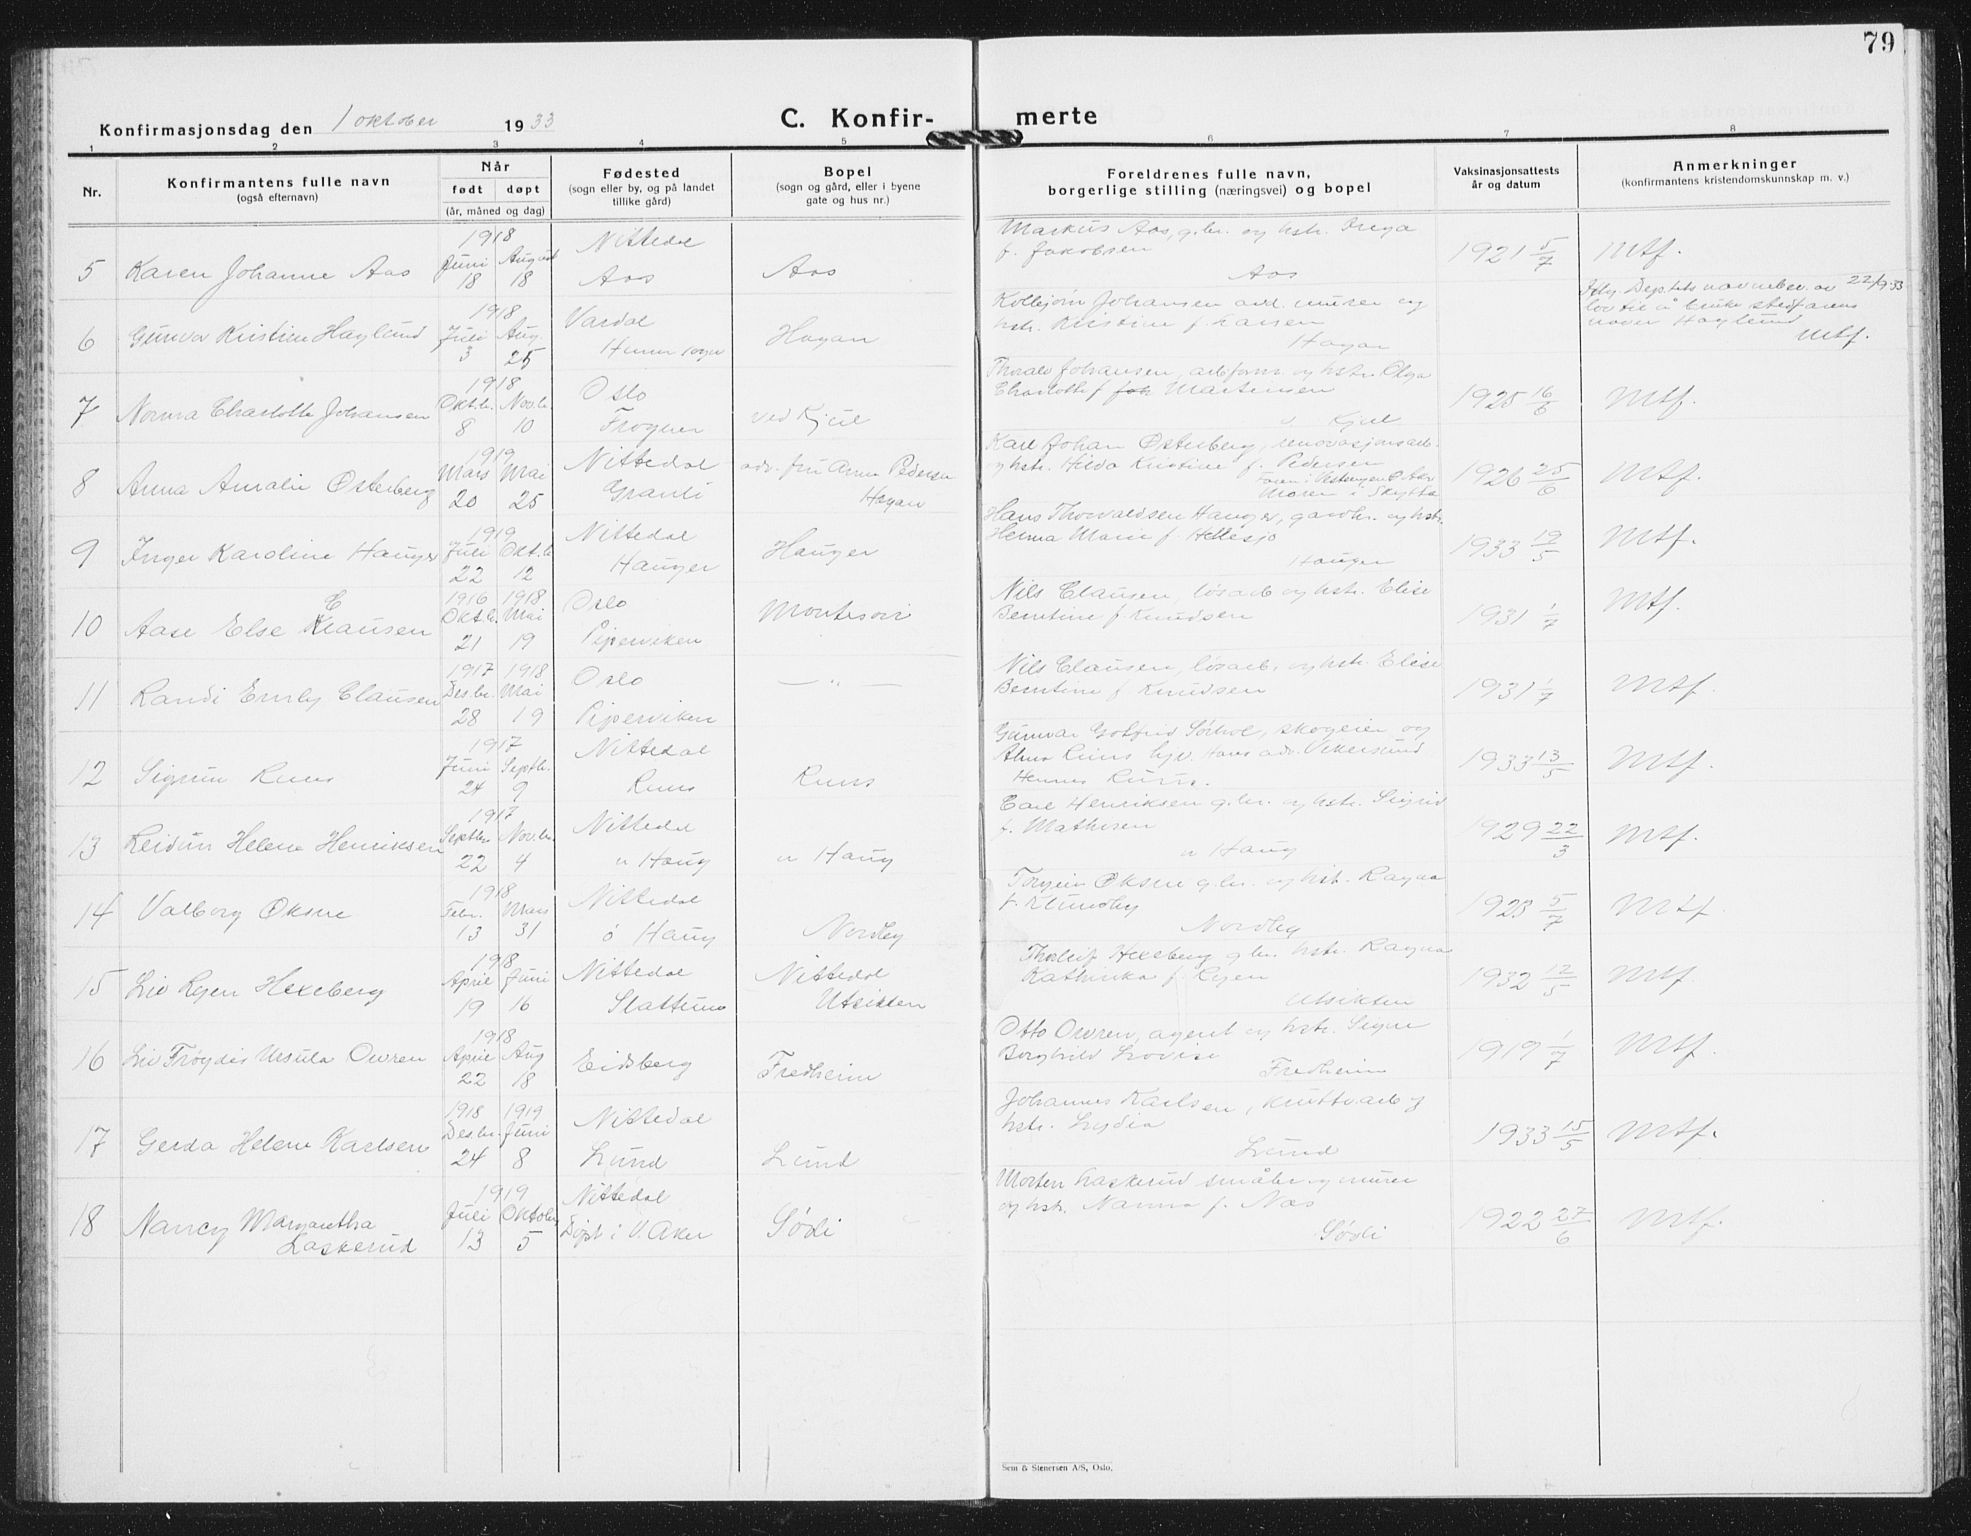 79
Konfirmasjonsdag den 1 oktober 1933
C. Konfir-
merte
1 2 3 4 5 6 7 8
Nr.
Konfirmantens fulle navn
(også efternavn)
Når
født døpt
(år, måned og dag)
Fødested
(sogn eller by, og på landet
tillike gård)
Bopel
(sogn og gård, eller i byene
gate og hus nr.)
Foreldrenes fulle navn,
borgerlige stilling (næringsvei) og bopel
Vaksinasjonsattests
år og datum
Anmerkninger
(konfirmantens kristendomskunnskap m. v.)
5 Karen Johanne Aas
1918
Juni August
18 18
Nittedal
Aas
Aas
Markus Aas, g.br. og hstr.
f. Jakobsen
Aas
1921 5/7
Mtf.
6 Gunvor Kristine Haglund
1918
Juli Aug.
3 25
Vardal
Hunn sogn
Hagan
Kolbjørn Johansen arb. murer og
hstr. Kristine f. Larsen
Hagan
22/9 33
lov til å bruke stedfarens
navn Haglund
Mtf.
7 Norma Charlotte Johansen
1918
Oktbr. Novbr.
8 10
Oslo
Frogner
ved Kjul
Thoralf Johansen, arb.form. og hstr. Olga
Charlotte f. Martinsen
v. Kjul
1925 16/6
Mtf.
8 Anna Amalie Østerberg
1919
Mars Mai
20 25
Nittedal
Granli
adr. fru Anna Pedersen
Hagan
Karl Johan Østerberg, renovasjonsarb.
og hstr. Hilda Kristine f. Pedersen
Moren i Skytta
1926 25/6
Mtf.
9 Inger Karoline Hauger
1919
Juli Okt.b.
22 12
Nittedal
Hauger
Hauger
Hans Thorvaldsen Hauger, gårdbr. og hstr.
Herma Marie f. Hellesjø
Hauger
1933 19/5
Mtf.
10 Aase Else Clausen
1916 1918
Oktb. Mai
21 19
Oslo
Piperviken
Montesori
Nils Clausen, løsarb og hstr. Elise
Berntine f. Knudsen
1931 1/7
Mtf.
11 Randi Emly Clausen
1917 1918
Desbr. Mai
28 19
Oslo
Piperviken
— „ —
Nils Clausen, løsarb. og hstr. Elise
Berntine f. Knudsen
1931 1/7
Mtf.
12 Sigrun Ruus
1917
Juni Septb.
24 9
Nittedal
Ruus
Ruus
Gunnar Gotfrid Sørhol, skogeier og
Alma Ruus hjv. Hans adr. Vikersund
Hennes Ruus.
1933 13/5
Mtf.
13 Reidun Helene Henriksen
1917
Septbr. Nov.br.
22 4
Nittedal
n Haug
n Haug
Carl Henriksen g.br. og hstr. Sigrid
f. Mathisen
n Haug
1929 22/3
Mtf.
14 Valborg Oksne
1918
Febr. Mars
13 31
Nittedal
ö Haug
Nordby
Torgeir Oksne g.br. og hstr. Ragna
f. Klundby
Nordby
1923 5/7
Mtf
15 Liv Ryen Hexeberg
1918
April Juni
19 16
Nittedal
Slattum
Nittedal
Utsikten
Thorleif Hexeberg g.br. hstr. Ragna
Kathinka f. Ryen
Utsikten
1932 12/5
Mtf.
16 Liv Frøydis Ursula Owren
1918
April Aug
22 18
Eidsberg
Fredheim
Otto Owren, agent og hstr. Signe
Borghild Lovise
Fredheim
1919 1/7
Mtf.
17 Gerda Helene Karlsen
1918 1919
Desbr. Juni
24 8
Nittedal
Lund
Lund
Johannes Karlsen, kruttarb og
hstr. Lydia
Lund
1933 15/5
Mtf.
18 Nancy Margaretha
Laskerud
1919
Juli Oktober
13 5
Nittedal
Døpt i V. Aker
Sødli
Morten Laskerud småbr og murer
og hstr. Nanna f. Næs
Sødli
1922 27/6
Mtf.
Sem & Stenersen A/S, Oslo.